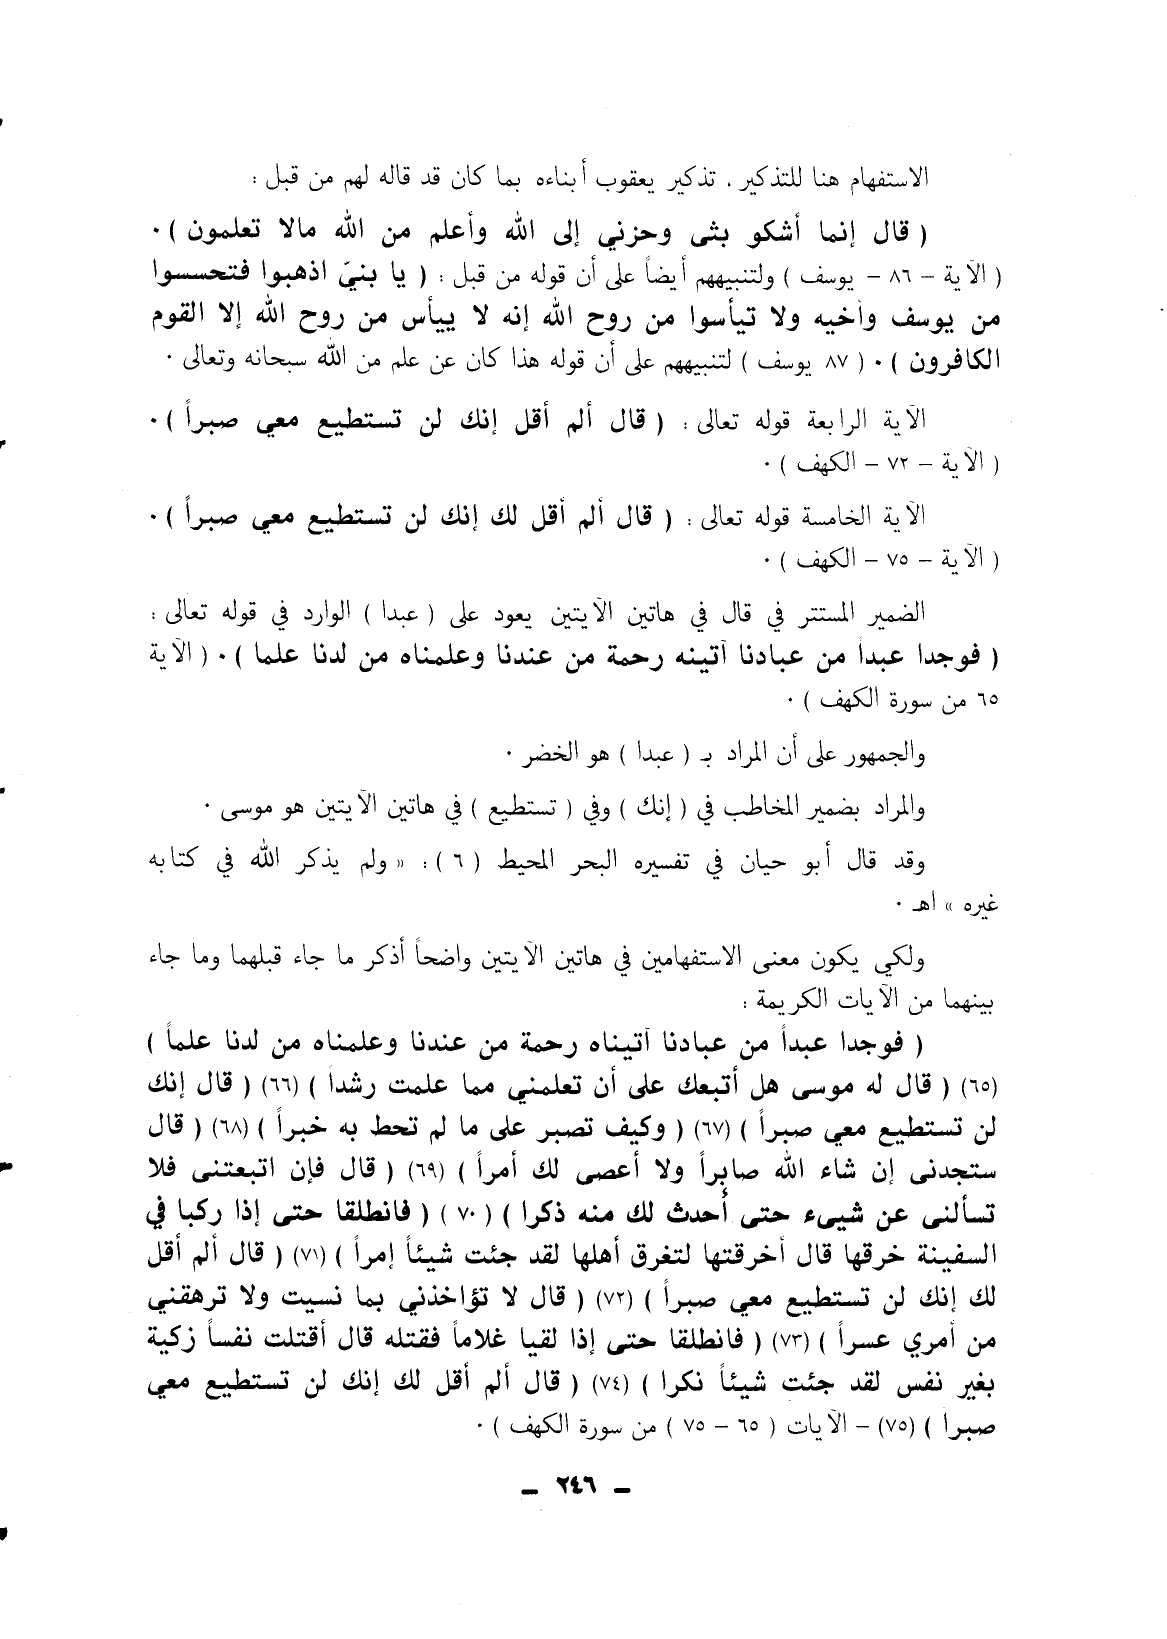 الاستفهام هنا للتذكير . تذكير يعقوب أبناءه بما كان قد قاله لهم من قبل :
( قال إنما أشكو بثى وحزني إلى الله وأعلم من الله مالا تعلمون ) ٠
( الآية – ٨٦ – يوسف ) ولتنبيههم أيضاً على أن قوله من قبل : ( يا بنيّ اذهبوا فتحسسوا
من يوسف وأخيه ولا تيأسوا من روح الله إنه لا ييأس من روح الله إلا القوم
الكافرون ) ٠ ( ٨٧ يوسف ) لتنبيههم على أن قوله هذا كان عن علم من الله سبحانه وتعالى ٠
الآية الرابعة قوله تعالى : ( قال ألم أقل إنك لن تستطيع معي صبراً ) ٠
( الآية – ٧٢ – الكهف ) ٠
الآية الخامسة قوله تعالى : ( قال ألم أقل لك إنك لن تستطيع معي صبراً ) ٠
( الآية – ٧٥ – الكهف ) ٠
الضمير المستتر في قال في هاتين الآيتين يعود على ( عبدا ) الوارد في قوله تعالى :
( فوجدا عبداً من عبادنا آتينه رحمة من عندنا وعلمناه من لدنا علما ) ٠ ( الآية
٦٥ من سورة الكهف ) ٠
والجمهور على أن المراد بـ ( عبدا ) هو الخضر ٠
والمراد بضمير المخاطب في ( إنك ) وفي ( تستطيع ) في هاتين الآيتين هو موسى ٠
وقد قال أبو حيان في تفسيره البحر المحيط ( ٦ ) : « ولم يذكر الله في كتابه
غيره » اهـ ٠
ولكي يكون معنى الاستفهامين في هاتين الآيتين واضحاً أذكر ما جاء قبلهما وما جاء
بينهما من الآيات الكريمة :
( فوجدا عبداً من عبادنا آتيناه رحمة من عندنا وعلمناه من لدنا علماً )
(٦٥) ( قال له موسى هل أتبعك على أن تعلمني مما علمت رشداً ) (٦٦) ( قال إنك
لن تستطيع معي صبراً ) (٦٧) ( وكيف تصبر على ما لم تحط به خبراً ) (٦٨) ( قال
ستجدنى إن شاء الله صابراً ولا أعصى لك أمراً ) (٦٩) ( قال فإن اتبعتنى فلا
تسألنى عن شيىء حتى أُحدث لك منه ذكرا ) ( ٧٠ ) ( فانطلقا حتى إذا ركبا في
السفينة خرقها قال أخرقتها لتغرق أهلها لقد جئت شيئاً إمراً ) (٧١) ( قال ألم أقل
لك إنك لن تستطيع معي صبراً ) (٧٢) ( قال لا تؤاخذني بما نسيت ولا ترهقني
من أمري عسراً ) (٧٣) ( فانطلقا حتى إذا لقيا غلاماً فقتله قال أقتلت نفساً زكية
بغير نفس لقد جئت شيئاً نكرا ) (٧٤) ( قال ألم أقل لك إنك لن تستطيع معي
صبرا ) (٧٥) – الآيات ( ٦٥ – ٧٥ ) من سورة الكهف ) ٠
– ٢٤٦ –